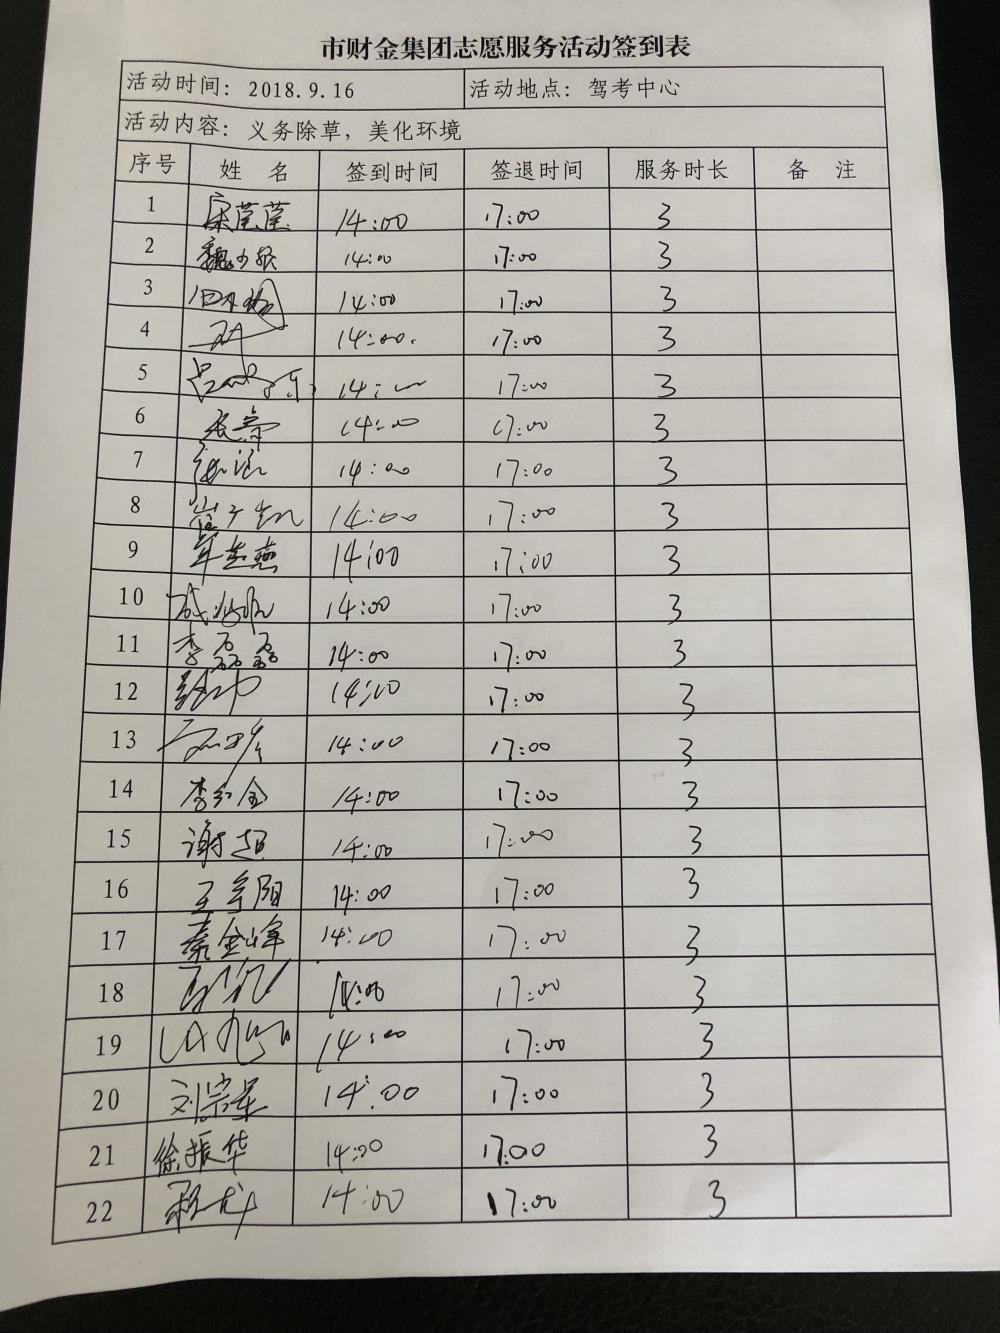 市财金集团志愿服务活动签到表
活动时间：2018.9.16 活动地点：驾考中心
活动内容：义务除草，美化环境
序号 姓名 签到时间 签退时间 服务时长 备注
1 宋莹莹 14:00 17:00 3
2 魏 14:00 17:00 3
3 14:00 17:00 3
4 14:00. 17:00 3
5 14:00 17:00 3
6 14:00 17:00 3
7 14:00 17:00 3
8 14:00 17:00 3
9 14:00 17:00 3
10 14:00 17:00 3
11 李磊磊 14:00 17:00 3
12 14:00 17:00 3
13 14:00 17:00 3
14 李红全 14:00 17:00 3
15 谢超 14:00 17:00 3
16 王宇阳 14:00 17:00 3
17 秦金峰 14:00 17:00 3
18 14:00 17:00 3
19 14:00 17:00 3
20 刘宗军 14:00 17:00 3
21 徐振华 14:00 17:00 3
22 14:00 17:00 3